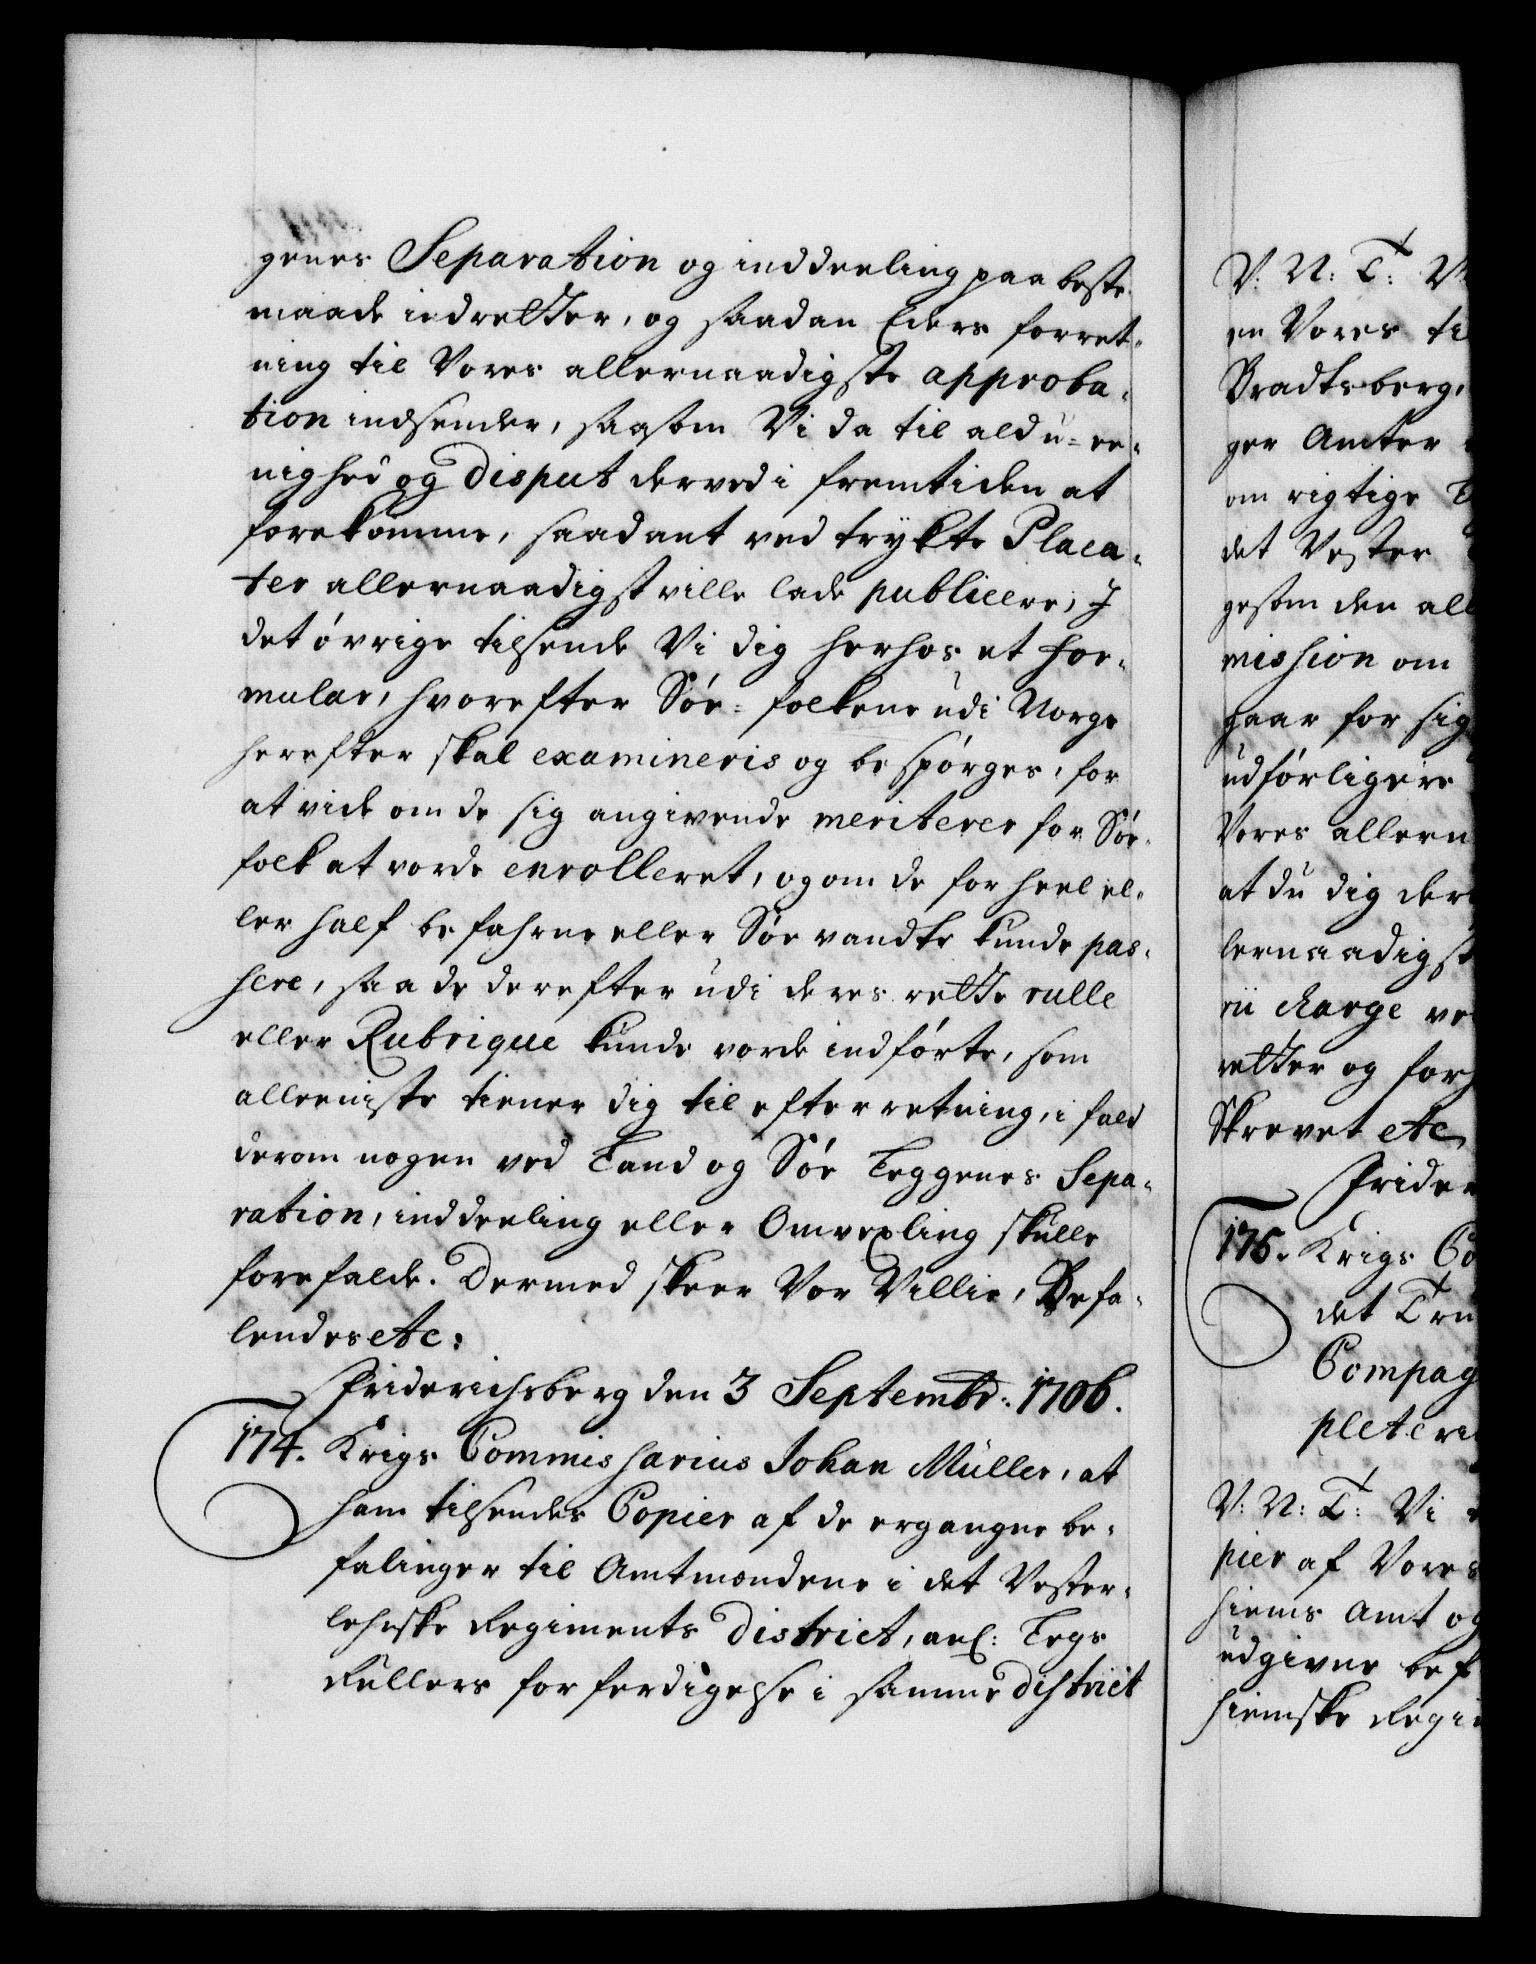 genes Separation og inddeeling paa beste
maade indretter, og saadan Eders forret-
ning til Vores allernaadigste approba-
tion indsender, saasom Vi da til ald u-ee-
nighed og Disput derved i fremtiden at
forekomme, saadant ved trykte Placa-
ter allernaadigst ville lade publicere; J
det øvrige tilsende Vi dig herhos et For-
mular, hvorefter Søe-folkene udi Norge
herefter skal examineris og bespørges, for
at vide om de sig angivende meriterer for Søe-
folk at vorde enrolleret, og om de for heel el-
ler half befahrne eller Søe vandte kunde pas-
sere, saa de derefter udi deres rette rulle
eller Rubrique kunde vorde indførte, som
alleeniste tiener dig til efterretning, i fald
derom nogen ved Land og Søe Leggenes Sepa-
ration, inddeeling eller Omvexling skulle
forefalde. Dermed skeer Vor Villie, Befa-
lendes etc:
Friderichsberg den 3 Septembr: 1706.
174. Krigs Commissarius Johan Müller, at
ham tilsendes Copier af de ergangne be-
falinger til Amtmændene i det Vester-
lehnske Regiments District, anl: Legs
Rullers forferdigelse i samme District
V: N: T: V
en Vores ti
Bradtsberg,
ger Amter
om rigtige
det Vester
gesom den all
mission om
gaar for sig
udførligere
Vores allern
at du dig der
lernaadigst
rii charge ve
retter og for
Skrevet etc
Frider
175. Krigs Co
det Tru
Compag
pleteri
V: N: T: Vi
pier af Vores
hiems Amt og
udgivne bef
hiemske Regi